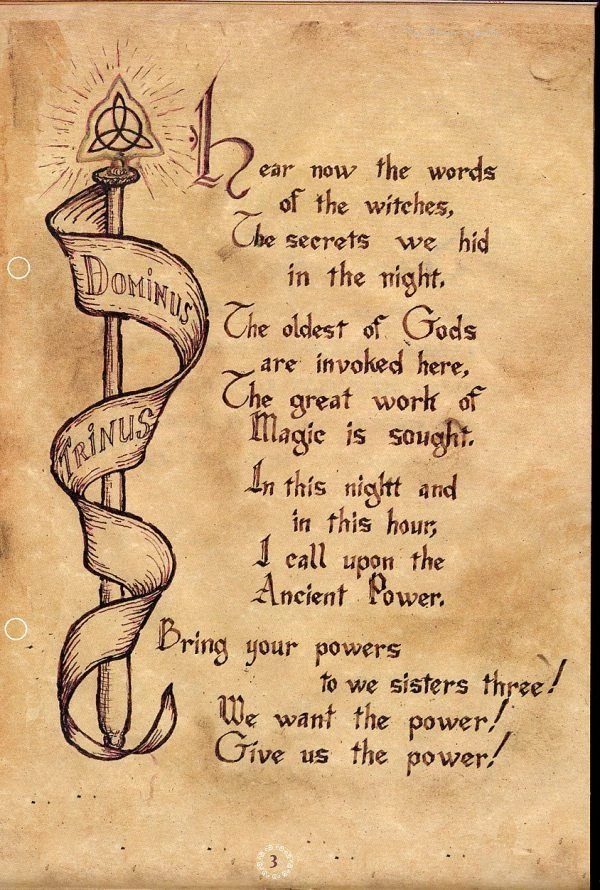 Hear now the words
of the witches,
The secrets we hid
in the night.
The oldest of Gods
are invoked here,
The great work of
Magic is sought.
In this night and
in this hour,
I call upon the
Ancient Power.
Bring your powers
to we sisters three!
We want the power!
Give us the power!
DOMINUS
TRINUS
3